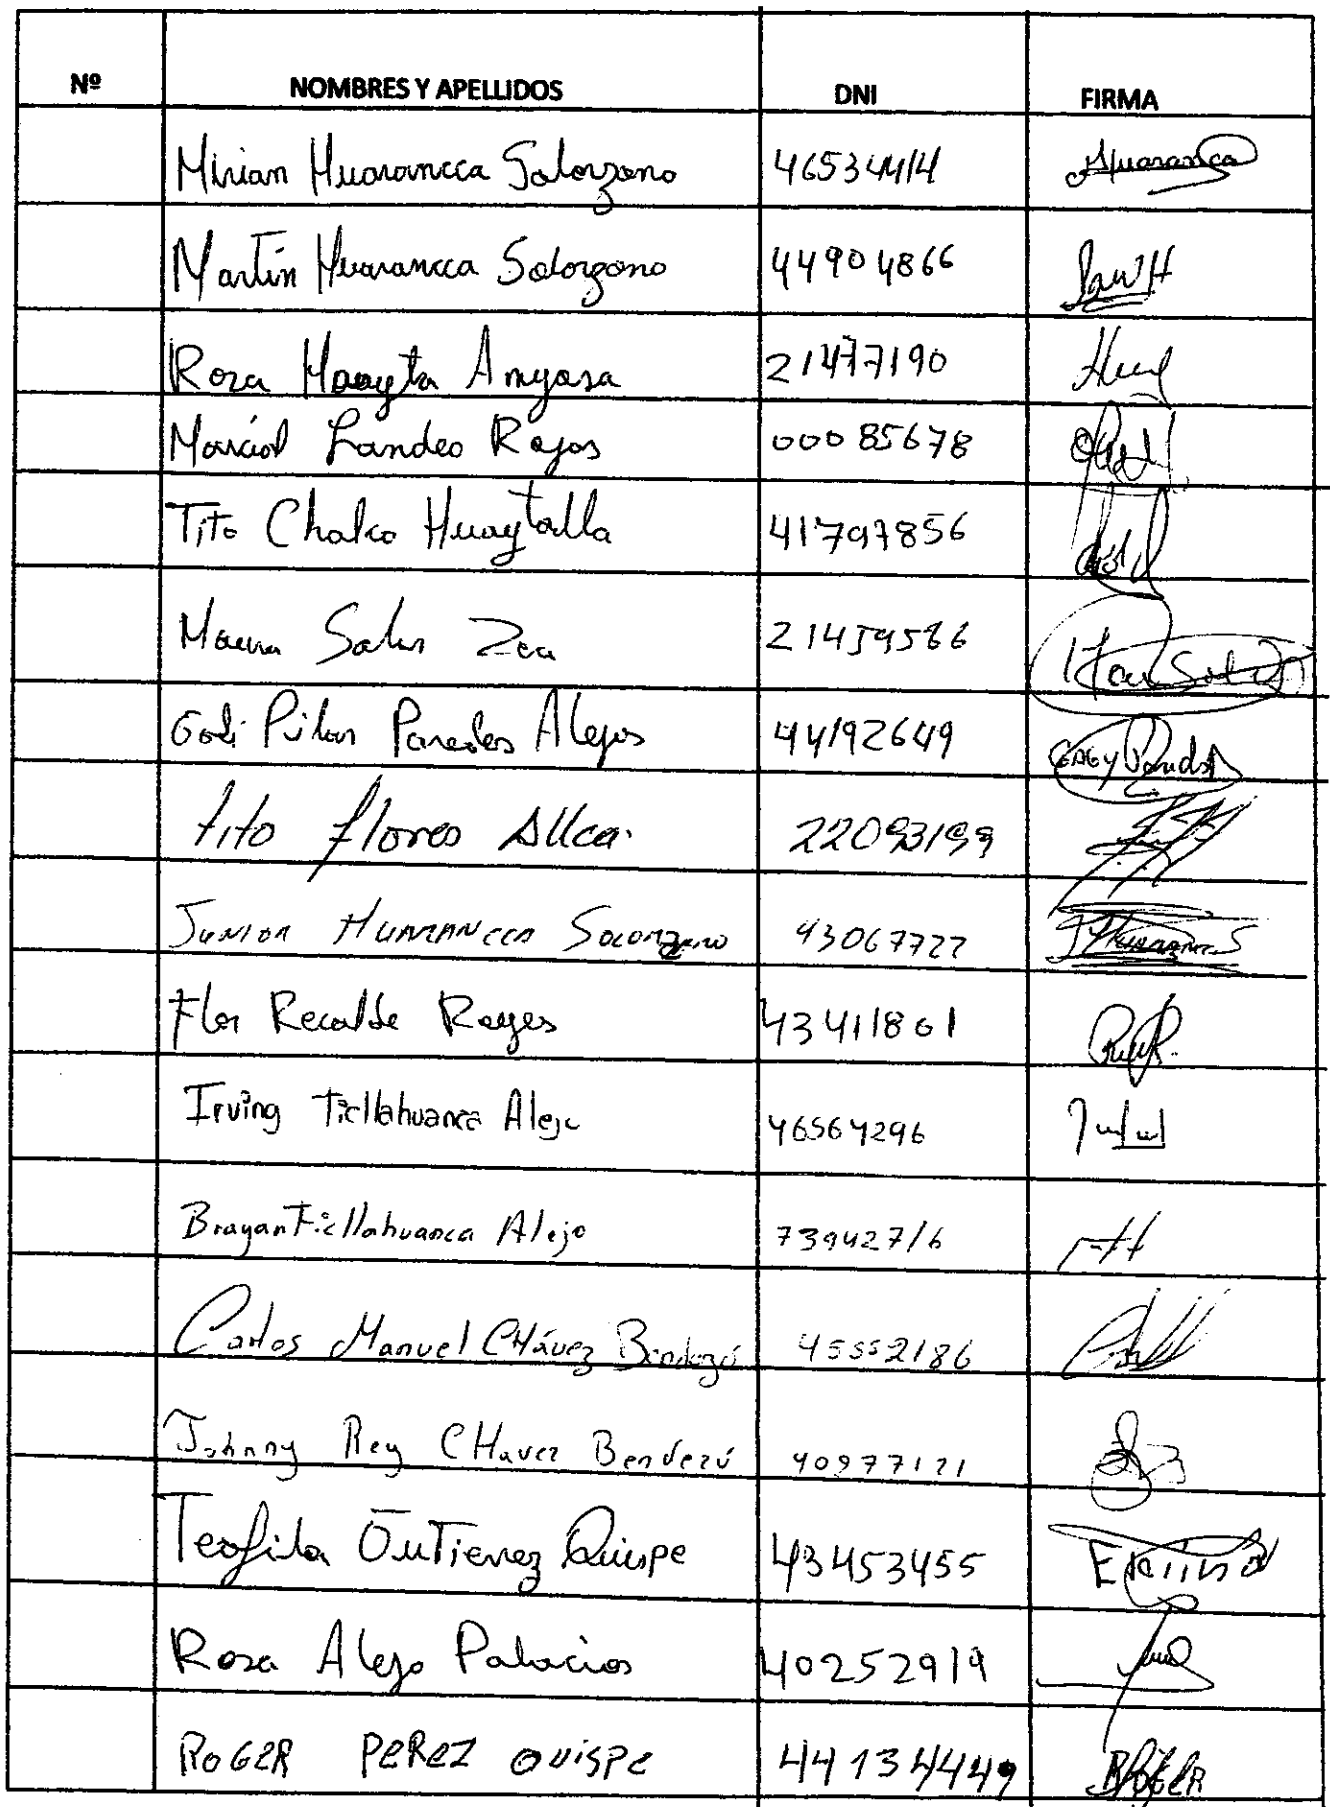 Nº NOMBRES Y APELLIDOS DNI FIRMA
Mirian Huarancca Solorzano 46534414 Huarancca
Martín Huarancca Solorzano 44904866
Rosa Huayta Anyosa 21477190
Marcial Landeo Rojas 00085678
Tito Chalco Huaytalla 41797856
Solis Zea 21459566
Pilar Paredes Alejos 44192649
Tito Flores Allca. 22093199
Junior Huarancca Solorzano 43067727
Flor Recalde Reyes 43411861
Irving Ticllahuanca Alejo 46564296
Brayan Ticllahuanca Alejo 73942716
Carlos Manuel CHávez Bendezú 45552186
Johnny Rey CHavez Bendezú 40977121
Teofila Gutierrez Quispe 43453455
Rosa Alejo Palacios 40252919
ROGER PEREZ QUISPE 44134449 ROGER